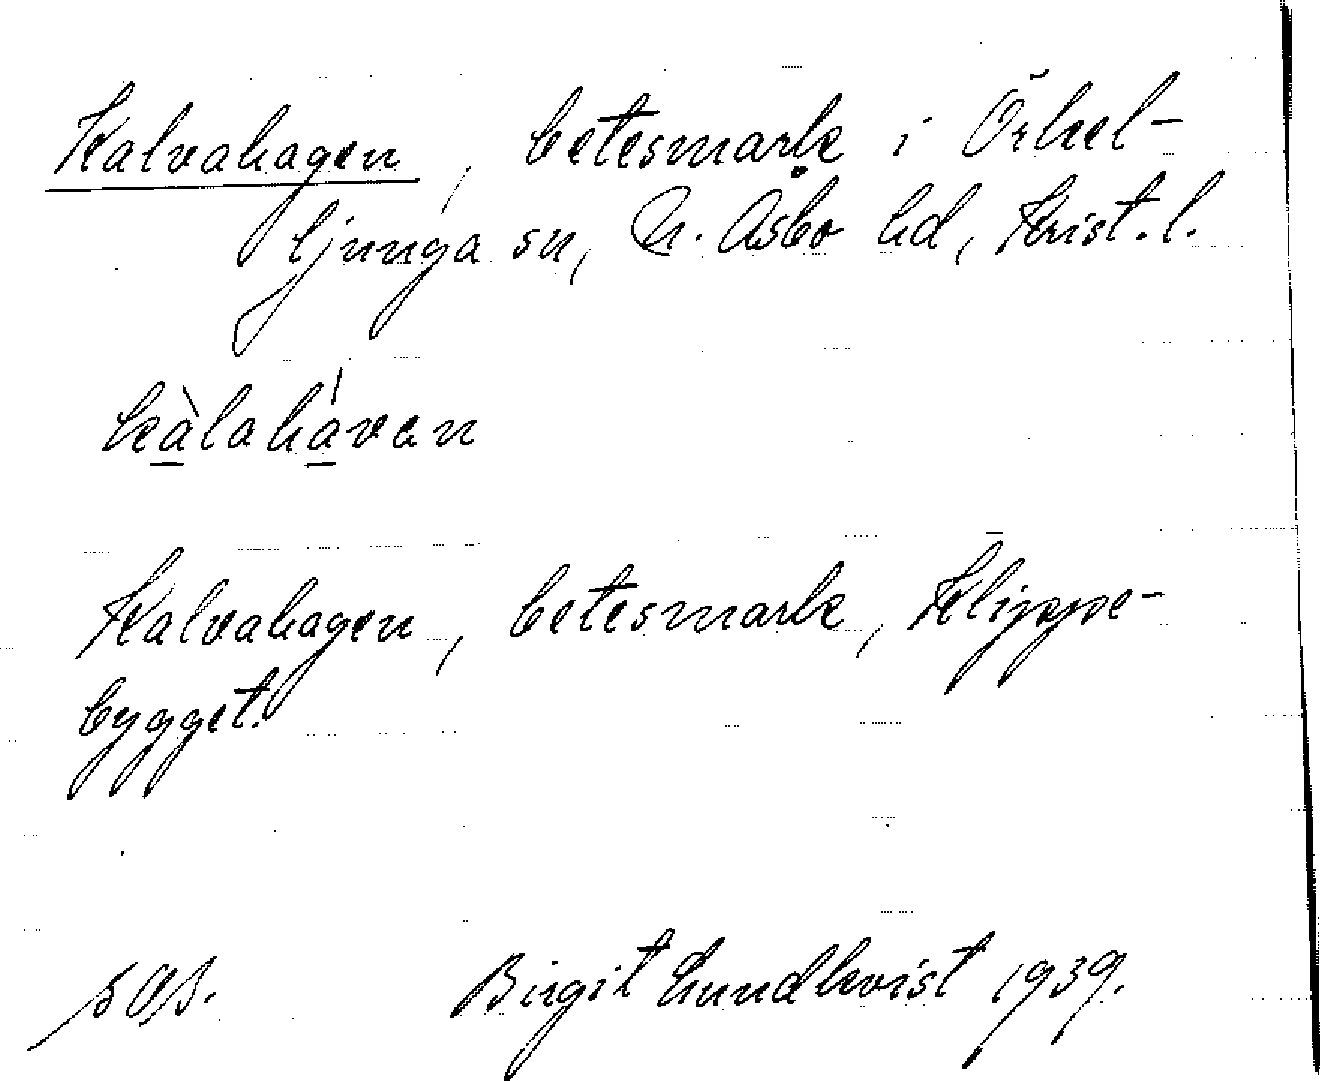 Kalvahagen, betesmark i Örkel-
ljunga sn, N. Åsbo hd, Krist. l.
kàlaháven
Kalvahagen, betesmark, Klippe-
bygget.
Birgit Lundkvist 1939.